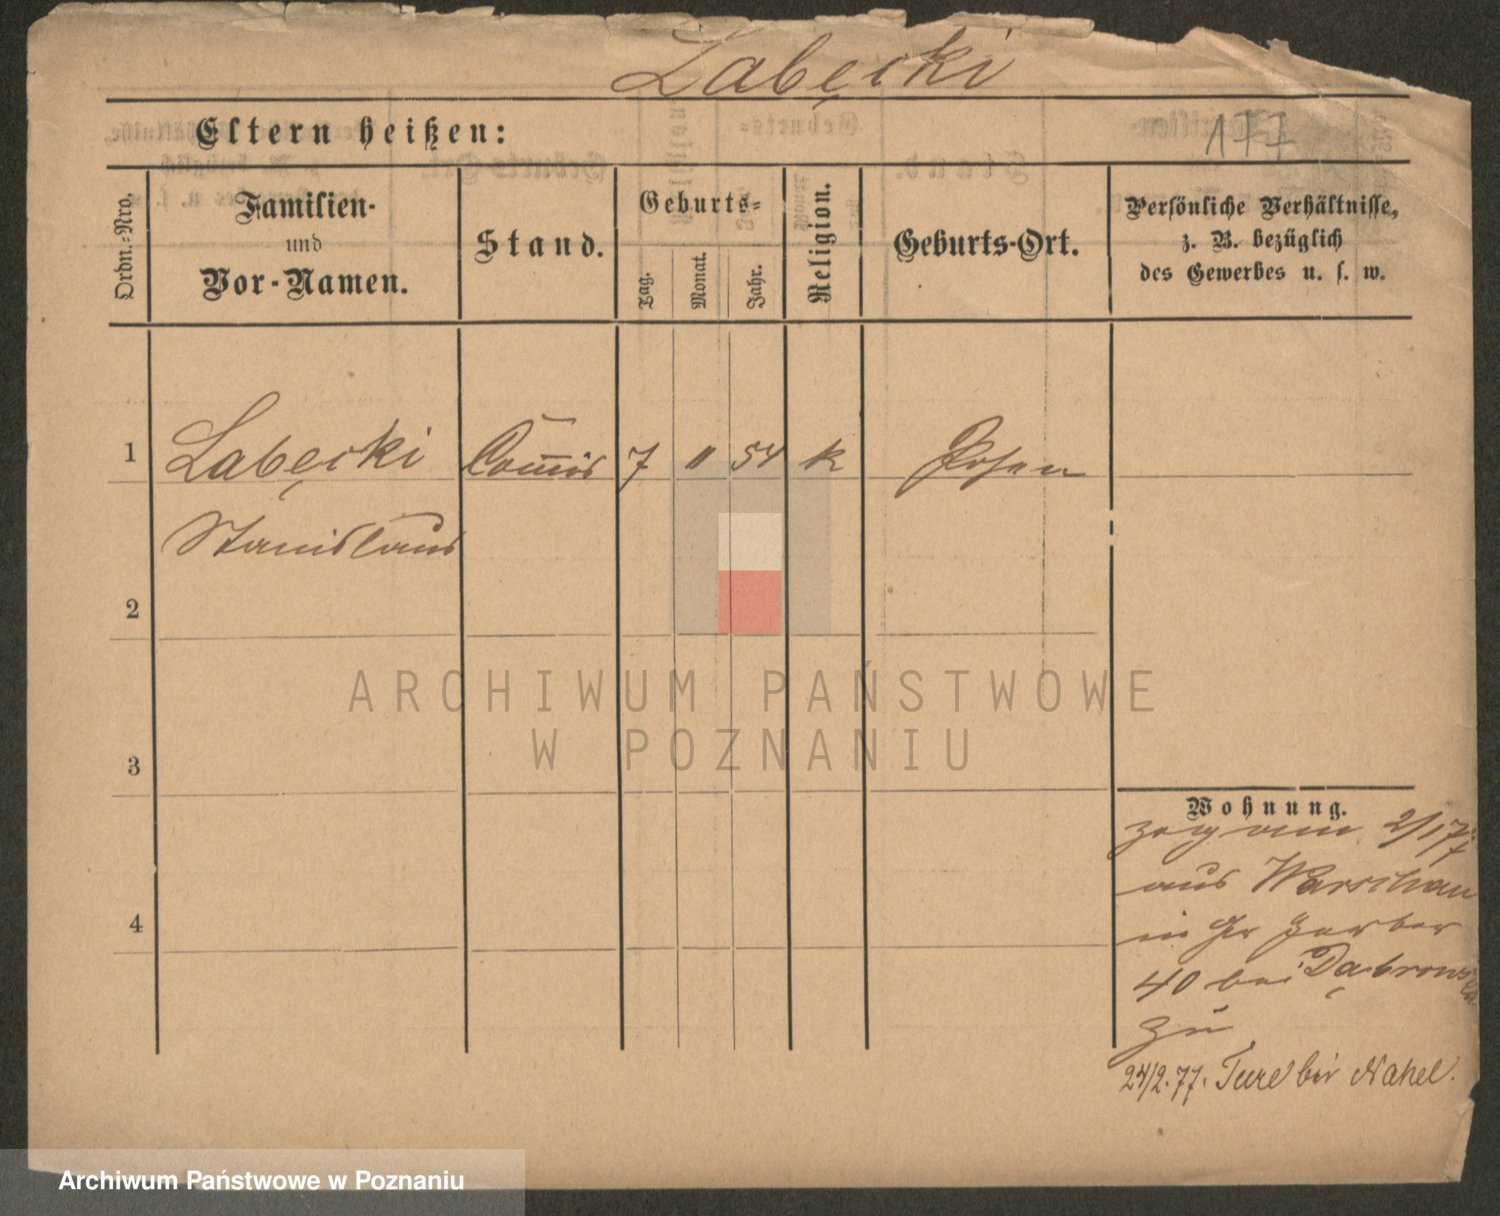 Labęcki
Eltern heißen:
177
Ordn.=Nro.
Familien-
und
Vor-Namen.
Stand.
Geburts=
Tag.
Monat.
Jahr.
Religion.
Geburts-Ort.
Persönliche Verhältnisse,
z. B. bezüglich
des Gewerbes u. s. w.
1
Labęcki Commis 7 11 54 k Posen
Stanislaus
2
ARCHIWUM PAŃSTWOWE
W POZNANIU
3
4
Wohnung.
zog am 2/1 77
aus Warschau
in Gr Gerber
40 bei Dąbrowski
zu
24/2.77. Ture bei Nakel.
Archiwum Państwowe w Poznaniu